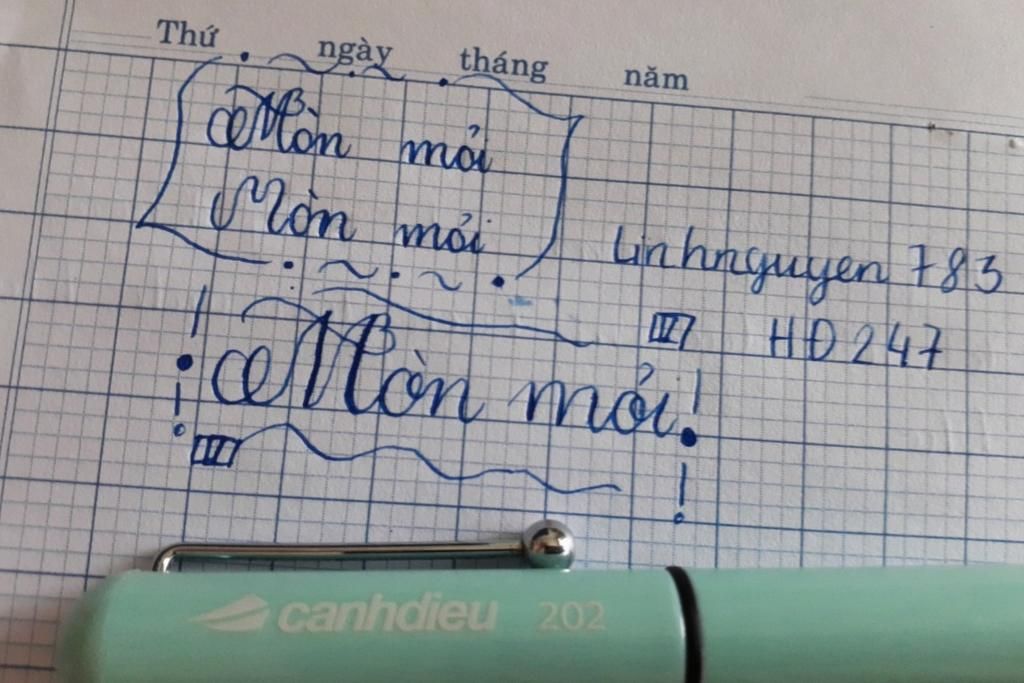 Thứ ngày tháng năm
Mòn mỏi
Mòn mỏi
Linhnguyen 783
HĐ 247
Mòn mỏi
canhdieu 202